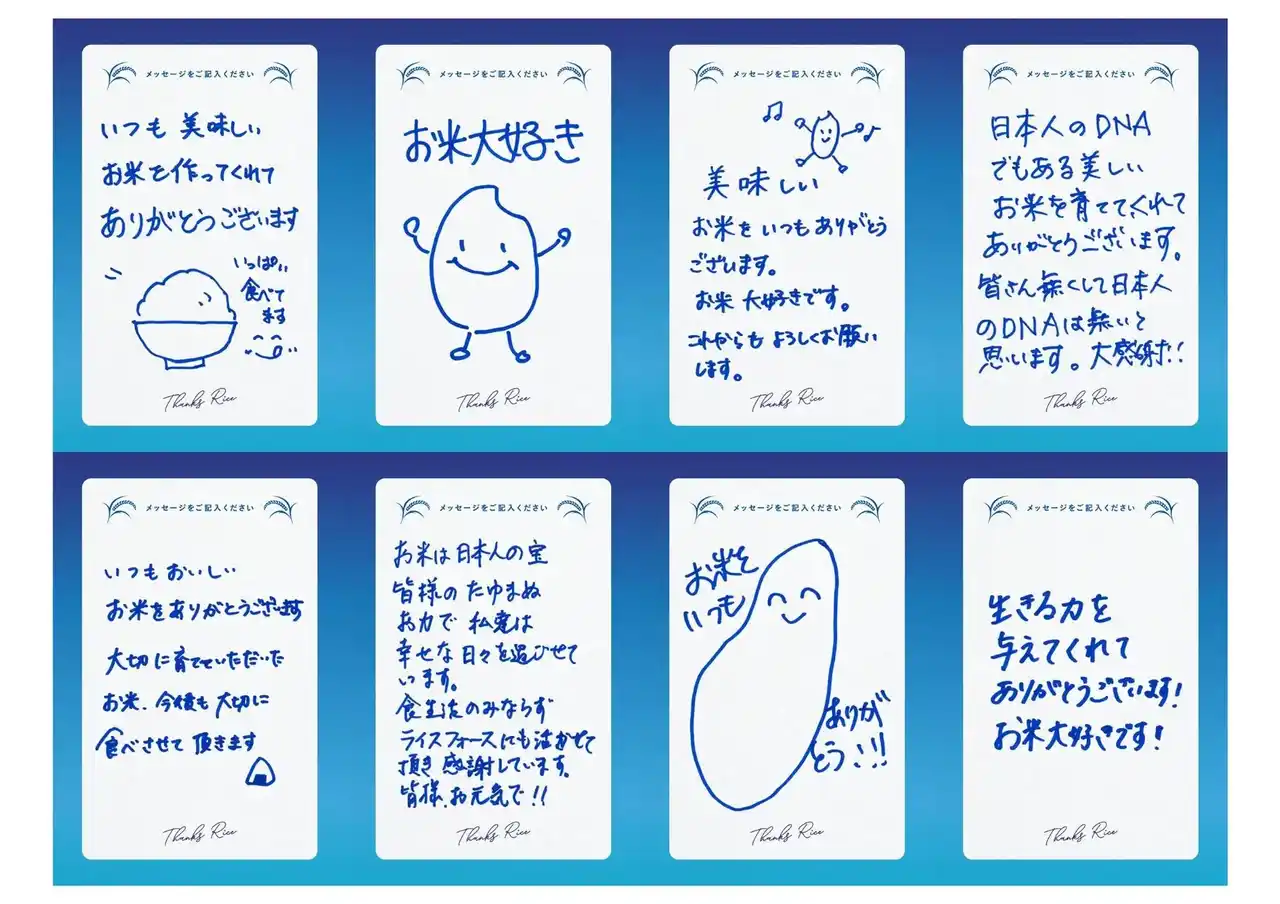 メッセージをご記入ください
いつも 美味しい
お米を作ってくれて
ありがとうございます
いっぱい
食べて
ます
Thanks Rice
メッセージをご記入ください
お米大好き
Thanks Rice
メッセージをご記入ください
美味しい
お米を いつも ありがとう
ございます。
お米 大好きです。
これからも よろしくお願い
します。
Thanks Rice
メッセージをご記入ください
日本人のDNA
でもある美しい
お米を育ててくれて
ありがとうございます。
皆さん無くして日本人
のDNAは無いと
思います。大感謝!!
Thanks Rice
メッセージをご記入ください
いつもおいしい
お米をありがとうございます
大切に育てていただいた
お米、今後も大切に
食べさせて頂きます
Thanks Rice
メッセージをご記入ください
お米は日本人の宝
皆様の たゆまぬ
お力で 私達は
幸せな日々を過ごせて
います。
食生活のみならず
ライスフォースにも活かせて
頂き 感謝しています。
皆様、お元気で!!
Thanks Rice
メッセージをご記入ください
お米を
いつも
ありが
とう!!
Thanks Rice
メッセージをご記入ください
生きる力を
与えてくれて
ありがとうございます!
お米大好きです!
Thanks Rice